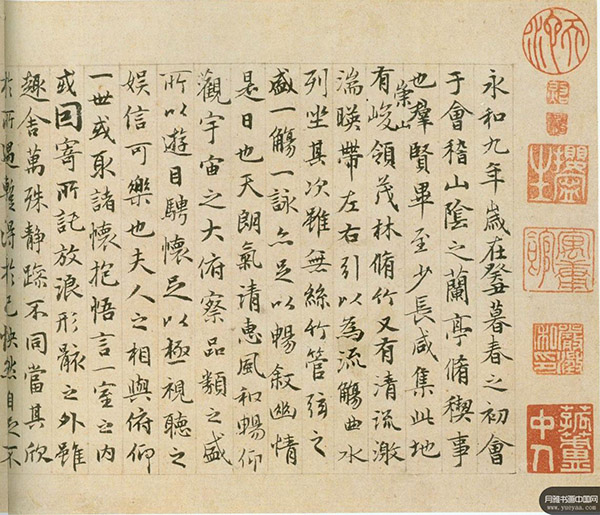 永和九年歲在癸丑暮春之初會
于會稽山陰之蘭亭脩稧事
也群賢畢至少長咸集此地
有崇山峻領茂林脩竹又有清流激
湍暎帶左右引以為流觴曲水
列坐其次雖無絲竹管弦之
盛一觴一詠亦足以暢敘幽情
是日也天朗氣清惠風和暢仰
觀宇宙之大俯察品類之盛
所以遊目騁懷足以極視聽之
娛信可樂也夫人之相與俯仰
一世或取諸懷抱悟言一室之內
或因寄所託放浪形骸之外雖
趣舍萬殊靜躁不同當其欣
於所遇蹔得於己怏然自足不
月雅书画中国网